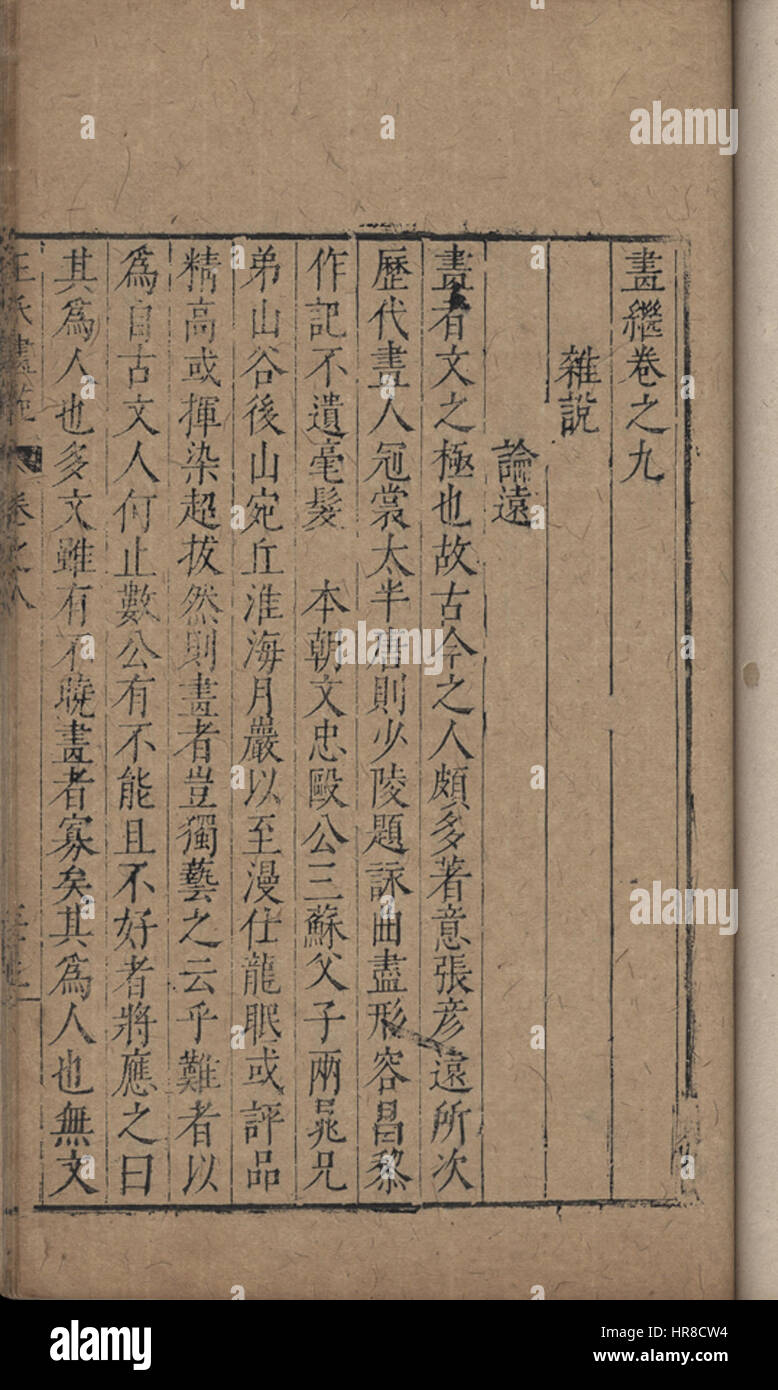 畫繼卷之九
雜說
論遠
畫者文之極也故古今之人頗多著意張彦遠所次
歷代畫人冠裳太半唐則少陵題詠曲盡形容昌黎
作記不遺毫髮　本朝文忠歐公三蘇父子兩晁兄
弟山谷後山宛丘淮海月巖以至漫仕龍眠或評品
精高或揮染超拔然則畫者豈獨藝之云乎難者以
為自古文人何止數公有不能且不好者將應之曰
其為人也多文雖有不曉畫者寡矣其為人也無文
王氏畫苑 卷之八
alamy
alamy
alamy
a
alamy
HR8CW4
www.alamy.com